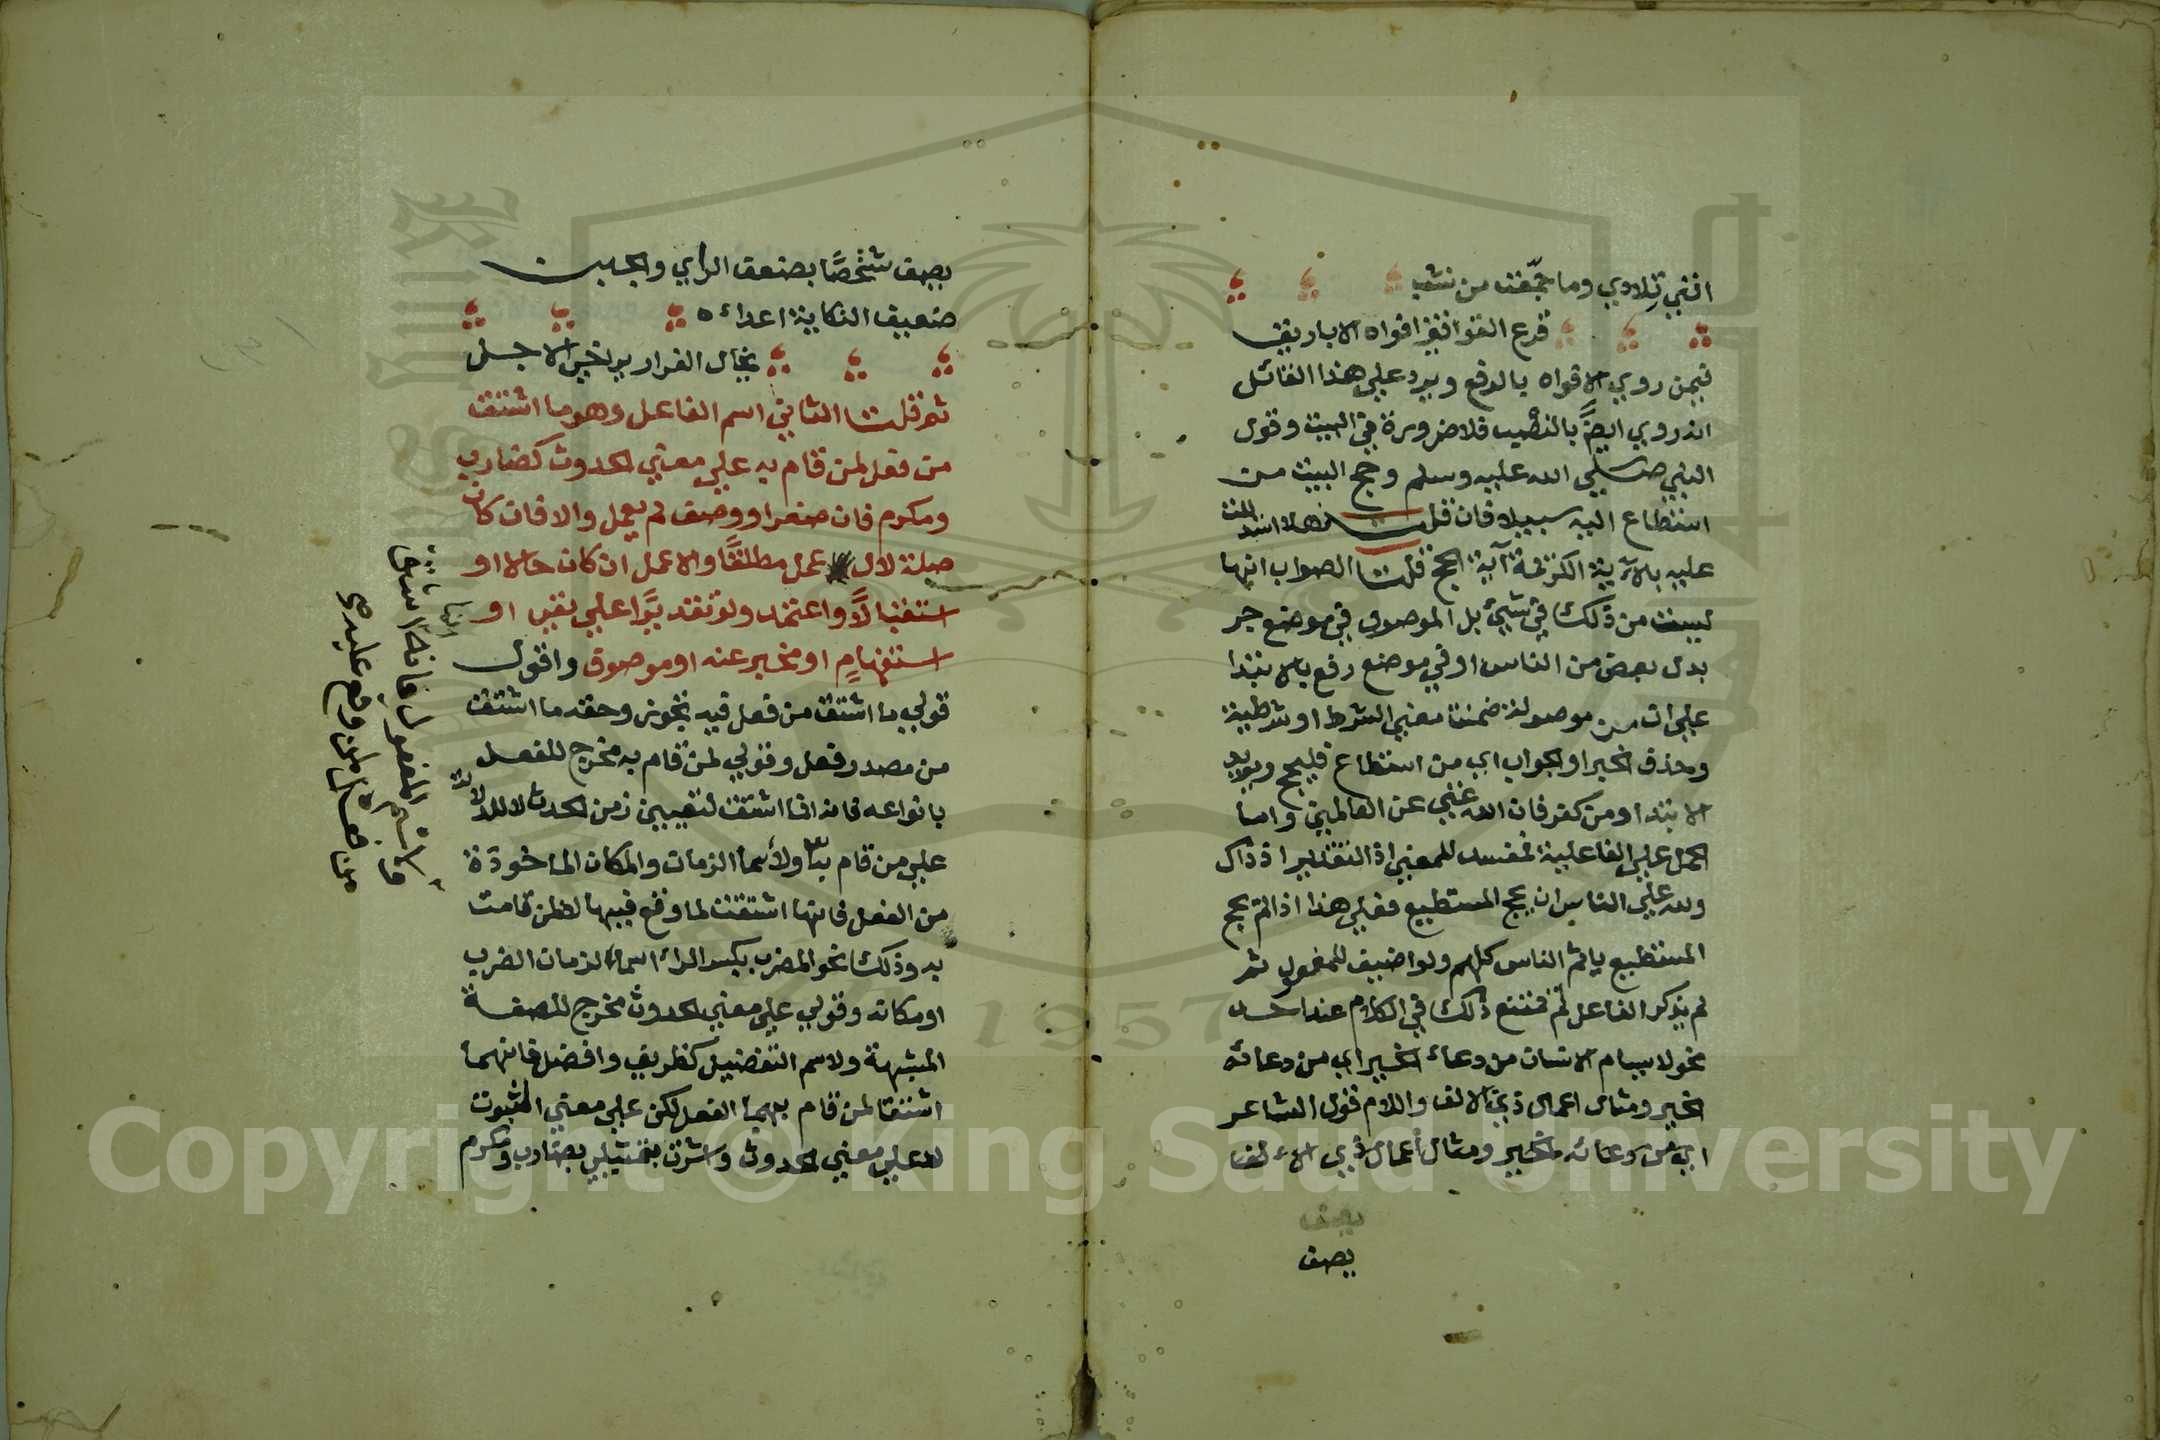 افني تلادي وما جمّعت من نشب
قرع القواقيز افواه الاباريق
فيمن روي الافواه بالرفع ويرد علي هذا القائل
انه روي ايضًا بالنصب فلا ضرورة في البيت وقول
النبي صلي الله عليه وسلم وحج البيت من
استطاع اليه سبيلا فان قلت فهلا استدللت
عليه بالآية الكريمة آية الحج قلت الصواب انها
ليست من ذلك في شيئ بل الموصول في موضع جر
بدل بعض من الناس او في موضع رفع بالابتدا
علي ان من موصولة ضمنت معني الشرط او شرطية
وحذف الخبر او الجواب اي من استطاع فليحج ويويد
الابتدا ومن كفر فان الله غني عن العالمين واما
الحمل علي الفاعلية فمفسد للمعني اذ التقدير اذ ذاك
ولله علي الناس ان يحج المستطيع فعلي هذا اذا لم يحج
المستطيع ياثم الناس كلهم ولو اضيف للمفعول ثم
لم يذكر الفاعل لم يمتنع ذلك في الكلام عند احد
نحو لا يسام الانسان من دعاء الخير اي من دعائه
الخير ومثال اعمال ذي الالف واللام قول الشاعر
اي من دعائه الخير ومثال اعمال ذي الالف
يصف
يصف شخصًا بضعف الراي والجبن
ضعيف النكاية اعداءه
يخال الفرار يراخي الاجل
ثم قلت الثاني اسم الفاعل وهو ما اشتق
من فعل لمن قام به علي معني الحدوث كضارب
ومكرم فان صغر او وصف لم يعمل والا فان كان
صلة لال عمل مطلقًا والا عمل ان كان حالا او
استقبالًا واعتمد ولو تقديرًا علي نفي او
استفهامٍ او مخبر عنه او موصوف واقول
قولي ما اشتق من فعل فيه تجوز وحقه ما اشتق
من مصدر فعل وقولي لمن قام به مخرج للفعل
بانواعه فانه انما اشتق لتعيين زمن الحدث لا للدلالة
علي من قام به ولاسما الزمان والمكان الماخوذة
من الفعل فانها اشتقت لما وقع فيها لا لمن قامت
به وذلك نحو المضرب بكسر الراء اسما لزمان الضرب
او مكانه وقولي علي معني الحدوث مخرج للصفة
المشبهة ولاسم التفضيل كظريف وافضل فانهما
اشتقا لمن قام بهما الفعل لكن علي معني الثبوت
لا علي معني الحدوث واشرت بتمثيلي بضارب ومكرم
اسم المفعول فانه انما اشتق
من فعل لمن وقع عليه
Copyright © King Saud University
1957